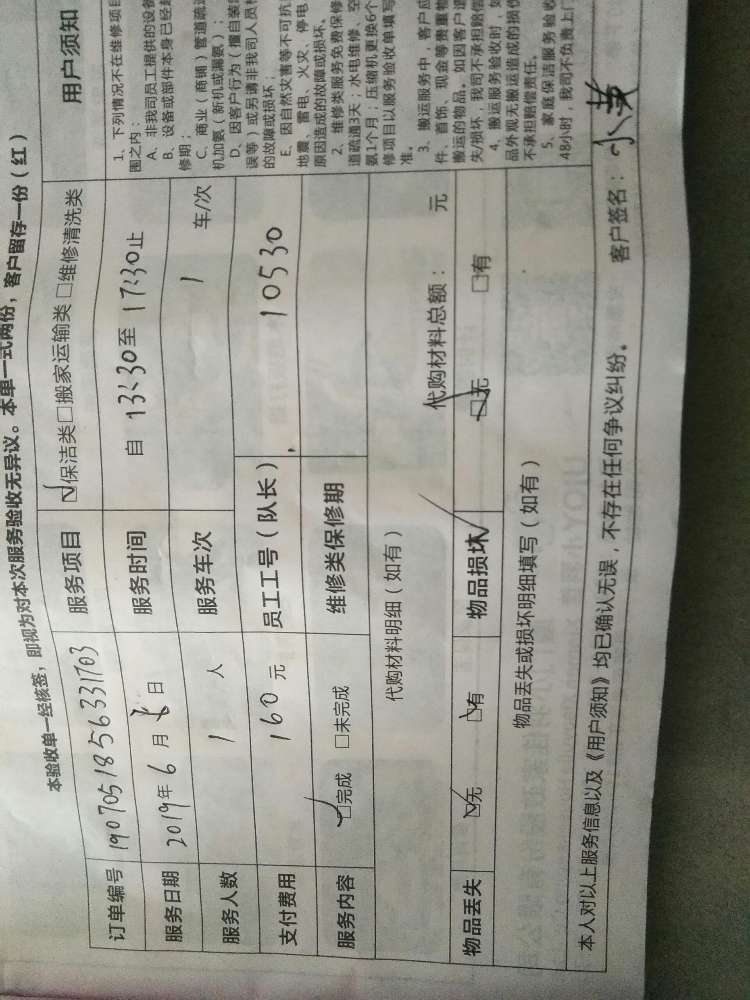 本验收单一经核签，即视为对本次服务验收无异议。本单一式两份，客户留存一份（红）
订单编号 1907051856331703 服务项目 ☑保洁类□搬家运输类□维修清洗类
服务日期 2019年6月 日 服务时间 自 13:30至 17:30止
服务人数 1 人 服务车次 1 车/次
支付费用 160 元 员工工号（队长） 10530
服务内容 ☑完成 □未完成 维修类保修期
代购材料明细（如有） 代购材料总额： 元
物品丢失 ☑无 □有 物品损坏 ☑无 □有
物品丢失或损坏明细填写（如有）
本人对以上服务信息以及《用户须知》均已确认无误，不存在任何争议纠纷。 客户签名：
用户须知
1、下列情况不在维修项目
围之内：
A、非我司员工提供的设备
B、设备或部件本身已经
修期；
C、商业（商铺）管道疏
机加氨（新机或漏氨）；
D、因客户行为（擅自装
误等）或另请非我司人员
的故障或损坏；
E、因自然灾害等不可抗
地震、雷电、火灾、停电
原因造成的故障或损坏。
2、维修类服务免费保修
道疏通3天；水电维修、空
氨1个月；压缩机更换6个
修项目以服务验收单填写
准。
3、搬运服务中，客户应
件、首饰、现金等贵重物
搬运的物品。如因客户
失/损坏，我司不承担赔偿
4、搬运服务验收时，如
品外观无搬运造成的损伤
不承担赔偿责任。
5、家庭保洁服务验收
48小时，我司不负责上门